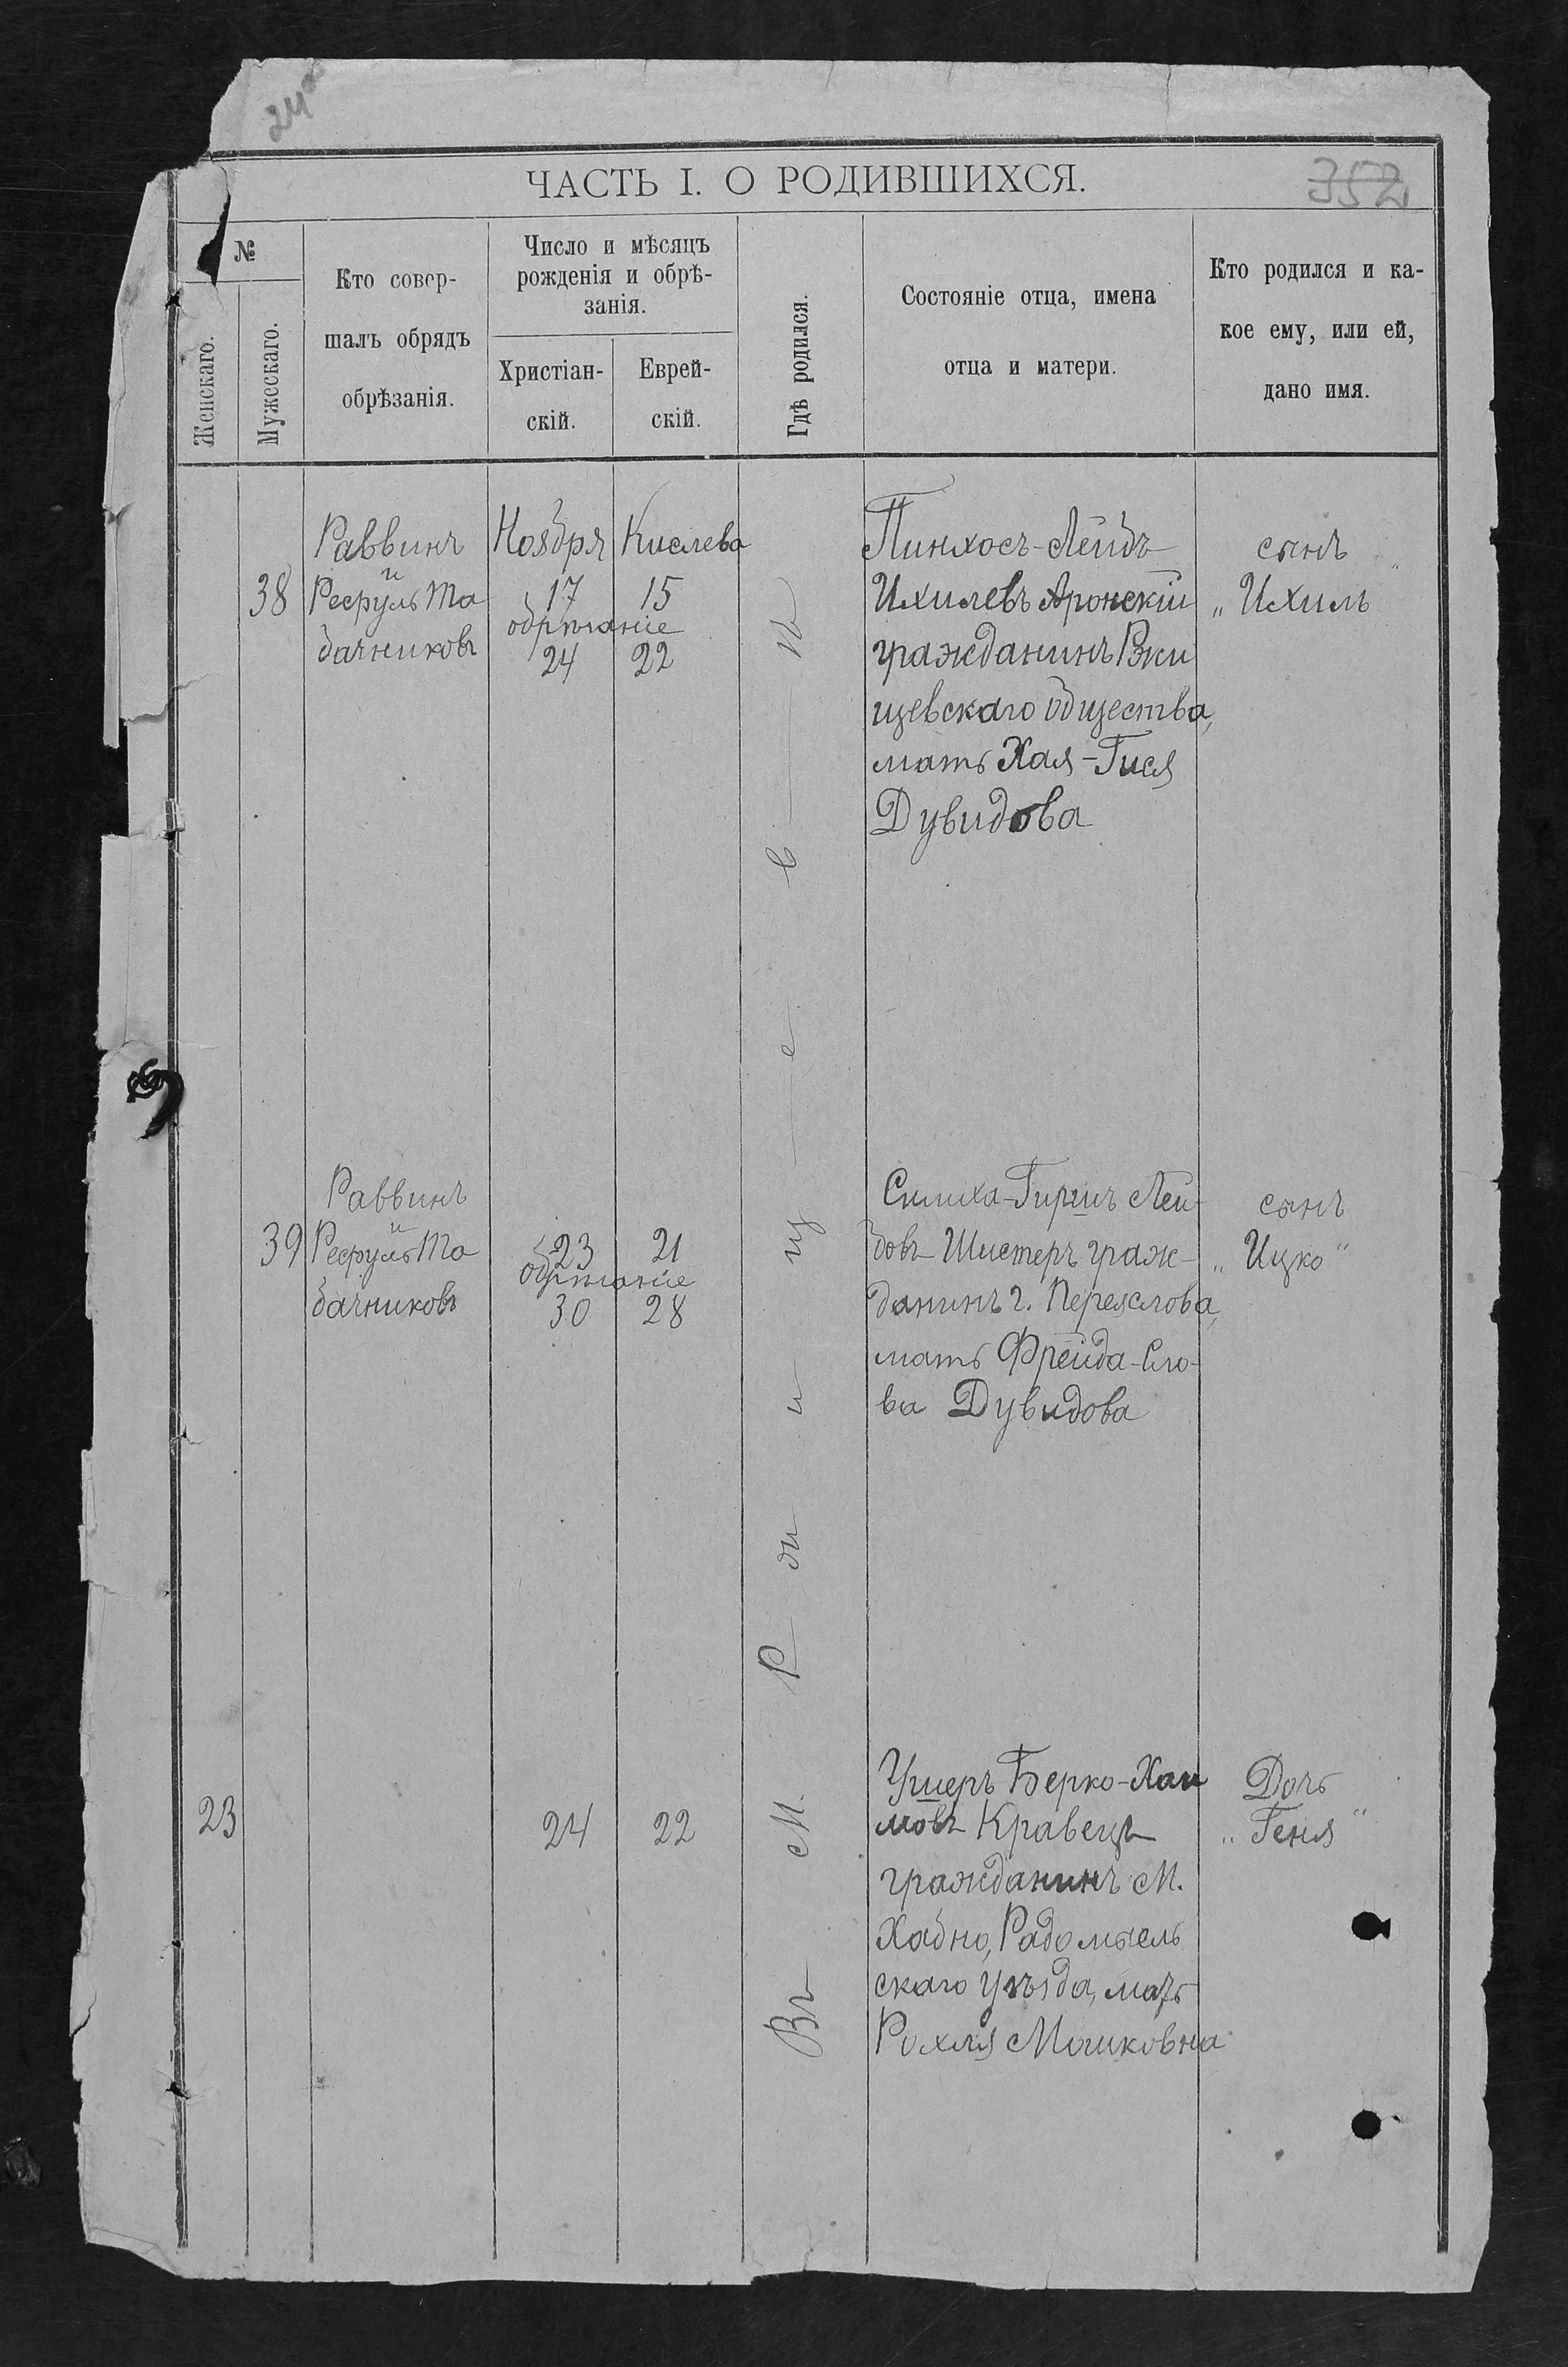 24
352
ЧАСТЬ I. О РОДИВШИХСЯ.
№
Женскаго.
Мужескаго.
Кто совер-
шалъ обрядъ
обрѣзанія.
Число и мѣсяцъ
рожденія и обрѣ-
занія.
Христіан-
скій.
Еврей-
скій.
Гдѣ родился.
Состояніе отца, имена
отца и матери.
Кто родился и ка-
кое ему, или ей,
дано имя.
38
Раввинъ
и
Ресфуль Та
бачниковъ
Ноября
17
обрѣзаніе
24
Кислева
15
22
Пинхосъ-Лейбъ
Ихилевъ Аронскій
гражданинъ Ржи
щевскаго общества,
мать Хая-Гися
Дувидова
сынъ
„Ихиль"
39
Раввинъ
и
Ресфуль Та
бачниковъ
23
обрѣзаніе
30
21
28
Симха-Гиршъ Лей-
бовъ Шистеръ граж-
данинъ г. Переяслова,
мать Фрейда-Сло-
ва Дувидова
сынъ
„Ицко"
23
24
22
Ушеръ Берко-Хаи
мовъ Кравецъ
гражданинъ М.
Хабно, Радомысль
скаго уѣзда, мать
Рохля Мошковна
Дочь
„Геня"
Въ М. Р ж и щ е в ѣ